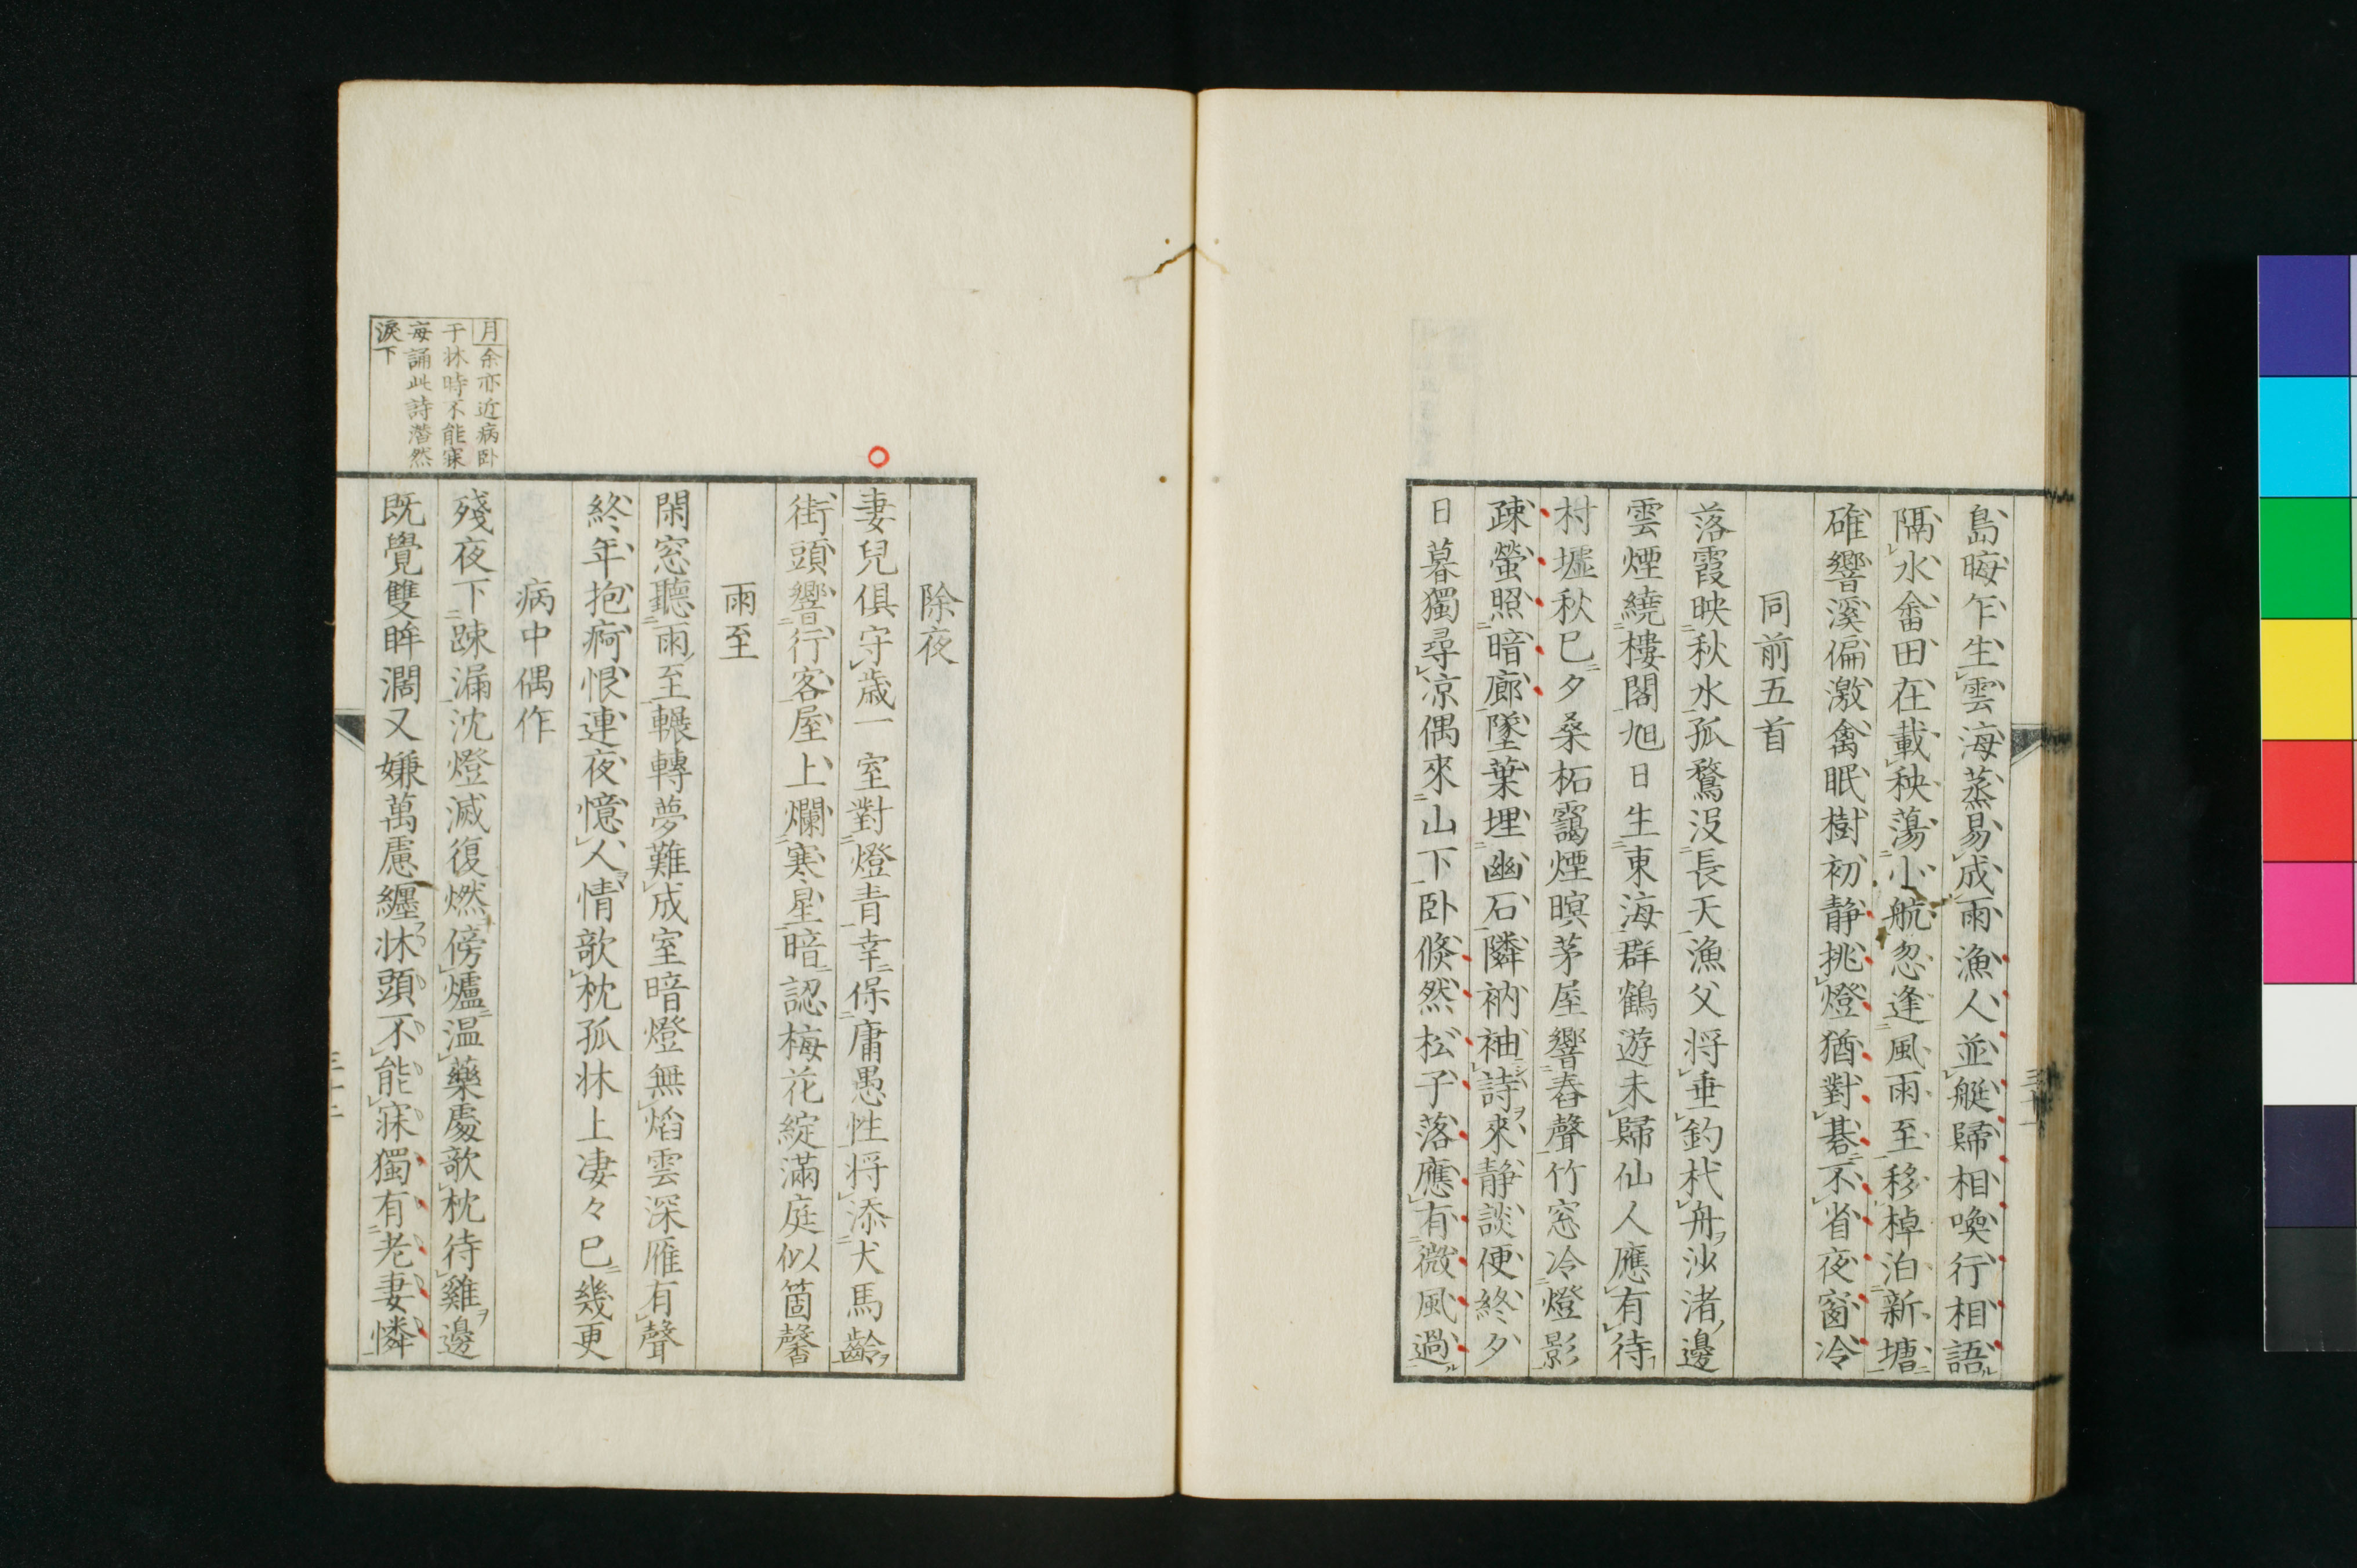 島晦乍生雲海蒸易成雨漁人並艇歸相喚行相語
隔水畬田在載秧蕩小航忽逢風雨至移棹泊新塘
碓響溪偏激禽眠樹初静挑燈猶對碁不省夜窗冷
同前五首
落霞映秋水孤鶩没長天漁父将垂釣杙舟沙渚邊
雲煙繞樓閣旭日生東海群鶴遊未歸仙人應有待
村墟秋已夕桑柘靄煙暝茅屋響舂聲竹窓冷燈影
疎螢照暗廊墜葉埋幽石隣衲袖詩來静談便終夕
日暮獨尋凉偶來山下卧倏然松子落應有微風過
三十一
除夜
妻兒俱守歳一室對燈青幸保庸愚性将添犬馬齡
街頭響行客屋上爛寒星暗認梅花綻滿庭似箇馨
雨至
閑窓聽雨至輾轉夢難成室暗燈無焰雲深雁有聲
終年抱痾恨連夜憶人情欹枕孤牀上凄々已幾更
病中偶作
殘夜下疎漏沈燈滅復燃傍爐温藥處欹枕待雞邊
既覺雙眸濶又嫌萬慮纏牀頭不能寐獨有老妻憐
月余亦近病卧
于牀時不能寐
毎誦此詩潸然
淚下
三十二